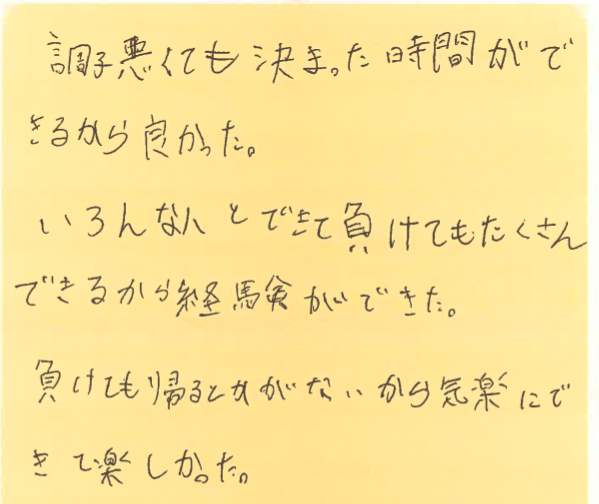 調子悪くても決まった時間がで
きるから良かった。
いろんな人とできて負けてもたくさん
できるから経験ができた。
負けても帰るとかがないから気楽にで
きて楽しかった。